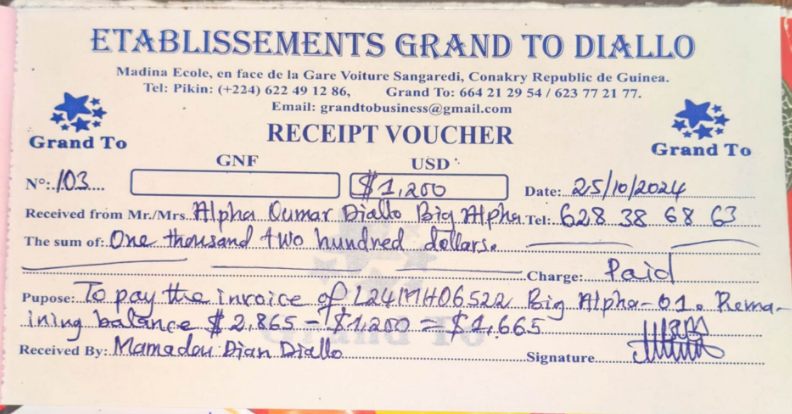 ETABLISSEMENTS GRAND TO DIALLO
Madina Ecole, en face de la Gare Voiture Sangaredi, Conakry Republic de Guinea.
Tel: Pikin: (+224) 622 49 12 86, Grand To: 664 21 29 54 / 623 77 21 77.
Email: grandtobusiness@gmail.com
Grand To
RECEIPT VOUCHER
Grand To
GNF USD
N°: 103 $1,200 Date: 25/10/2024
Received from Mr./Mrs. Alpha Oumar Diallo Big Alpha Tel: 628 38 68 63
The sum of: One thousand two hundred dollars.
Charge: Paid
Pupose: To pay the invoice of L24MH06522 Big Alpha-01. Rema-
ining balance $2,865 - $1,200 = $1,665
Grand To
Received By: Mamadou Dian Diallo Signature